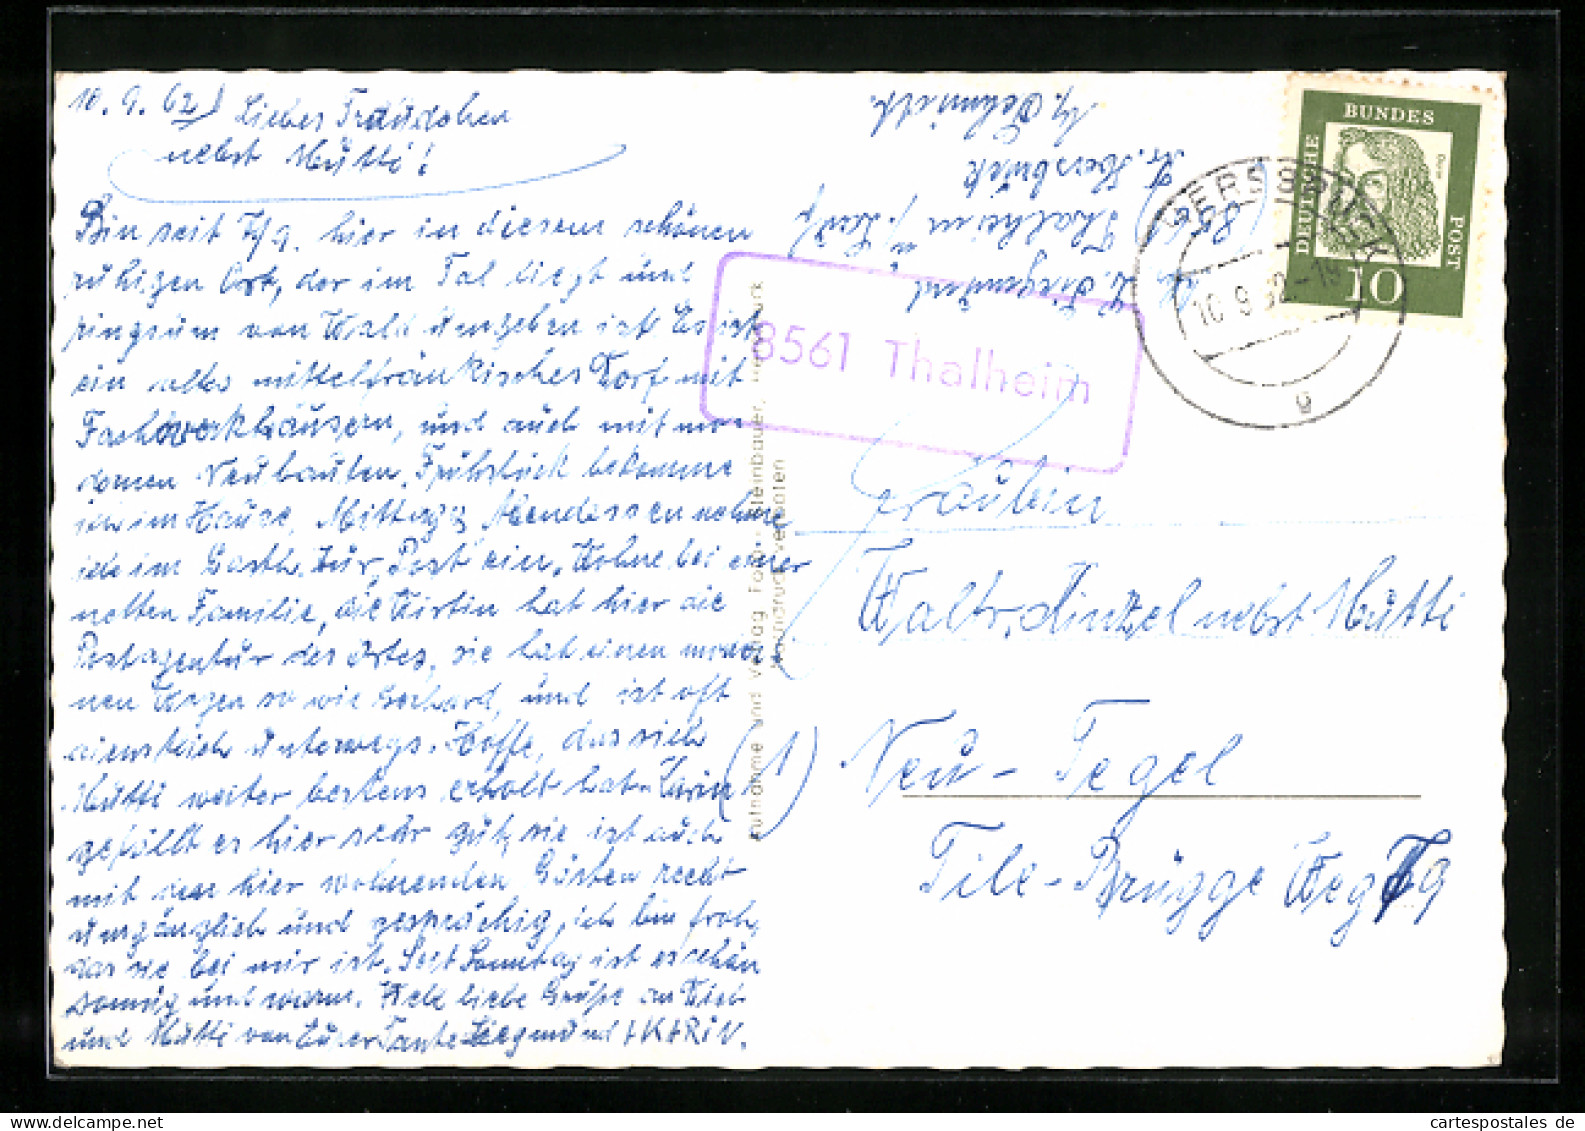 10. 9. 62) Liebes Traudchen
nebst Mutti!
Bin seit 7/9. hier in diesem schönen
ruhigen Ort, der im Tal liegt und
ringsum von Wald umgeben ist. Es ist
ein altes mittelfränkisches Dorf mit
Fachwerkhäusern, und auch mit mo-
dernen Neubauten. Frühstück bekomme
ich im Hause, Mittag u. Abendessen nehme
ich im Gasth. zur Post ein. Wohne bei einer
netten Familie, die Wirtin hat hier die
Postagentur des Ortes, sie hat einen
nen Wagen so wie Gerhard, und ist oft
dienstlich unterwegs. Hoffe, das sich
Mutti weiter bestens erholt hat. Karin
gefällt es hier sehr gut, sie ist auch
mit den hier wohnenden Gästen recht
umgänglich und gesprächig, ich bin froh,
das sie bei mir ist. Seit Sonntag ist es schön
sonnig und warm. Viele liebe Grüße an Dich
und Mutti von Eurer Tante und KARIN.
Aufnahme und Verlag Foto-Steinbauer, Hersbruck
Nachdruck verboten
(8561)
Thalheim
Kr. Hersbruck
Schmidt.
DEUTSCHE
BUNDES
POST
Dürer
10
HERSBRUCK
10.9.62-19
g
8561 Thalheim
Fräulein
Waltr. Hintzel nebst Mutti
(1) Neu-Tegel
Tile-Brügge Weg
cartespostales de